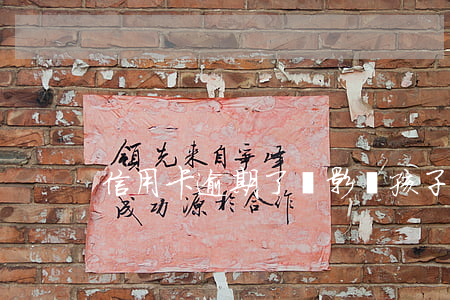 領先来自峰
信用卡逾期了影孩子
成功源於合作